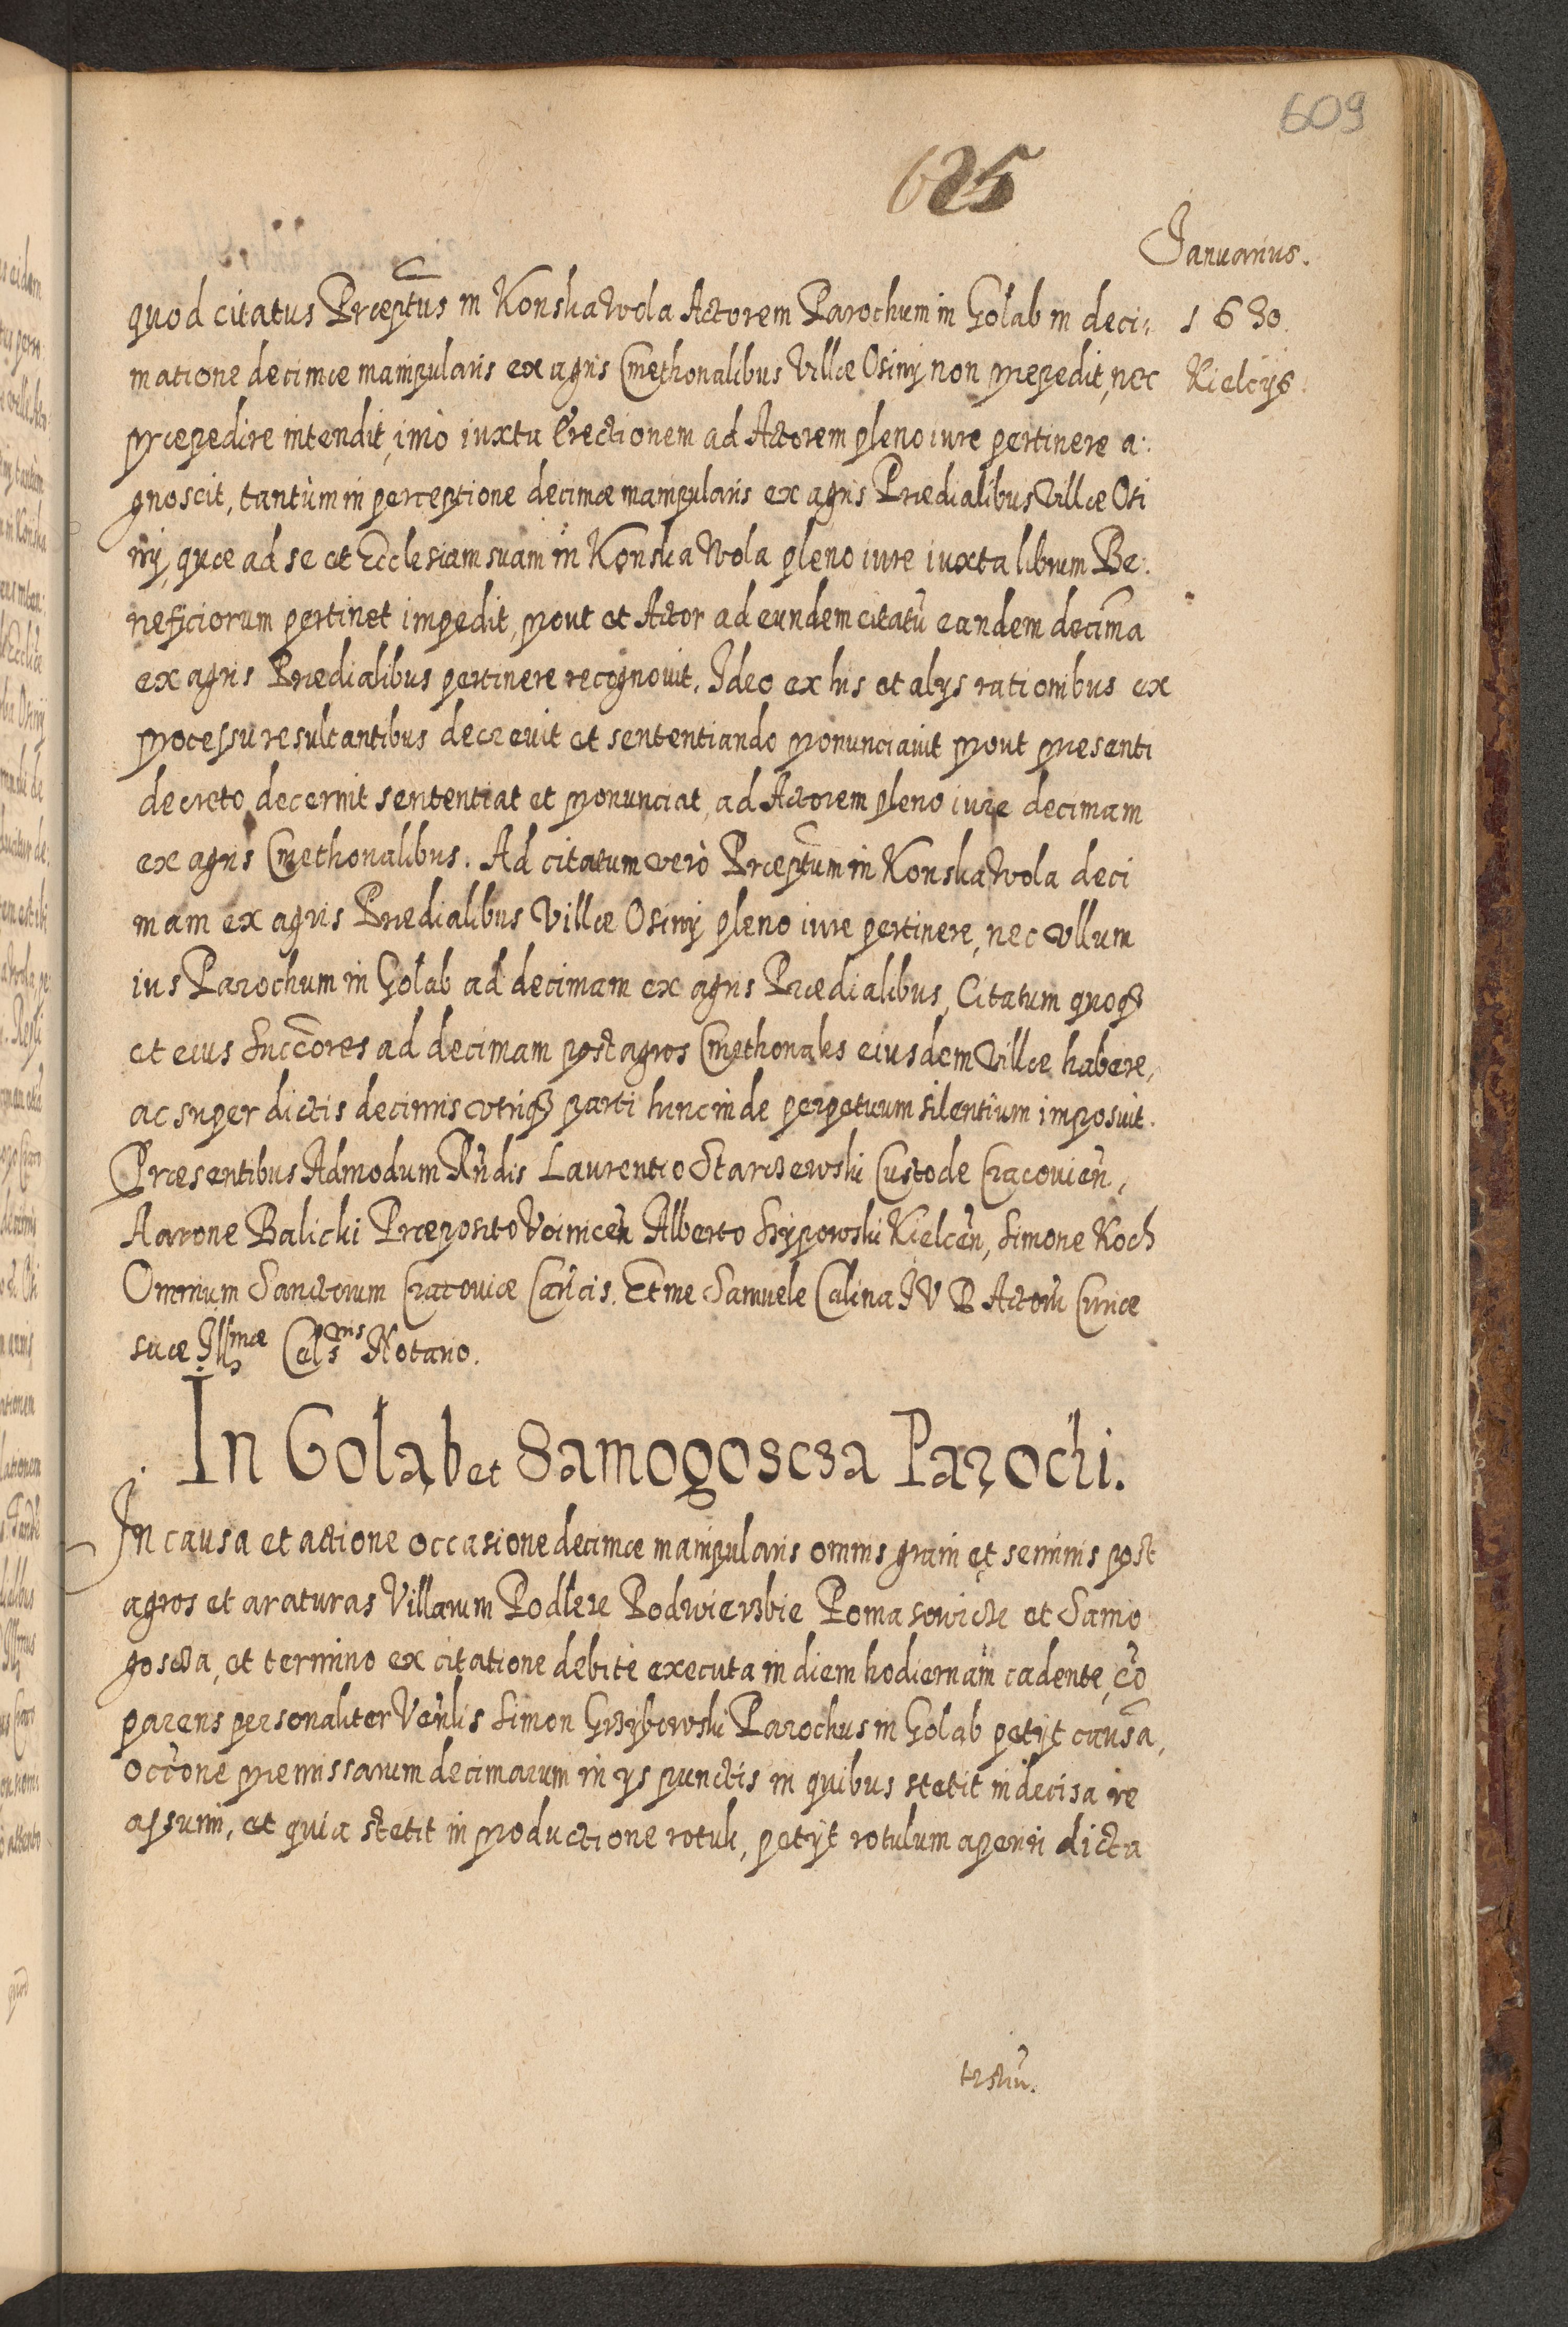 609
625
Januarius.
1630.
Kielcijs.
quod citatus Præptus in Konska Wola Actorem Parochum in Golab in deci:
matione decimæ manipularis ex agris Cmethonalibus Villæ Osiny non præpedit, nec
præpedire intendit, imò iuxta Erectionem ad Actorem pleno iure pertinere a:
gnoscit, tantùm in perceptione decimæ manipularis ex agris Prædialibus Villæ Osi
ny, quæ ad se et Ecclesiam suam in Konska Wola pleno iure iuxta librum Be:
neficiorum pertinet impedit, prout et Actor ad eundem citatū eandem decimā
ex agris Prædialibus pertinere recognovit. Ideo ex his et alys rationibus ex
processu resultantibus decrevit et sententiando pronunciavit prout præsenti
decreto decernit sententiat et pronunciat, ad Actorem pleno iure decimam
ex agris Cmethonalibus. Ad citatum verò Præptum in Konska Wola deci
mam ex agris Prædialibus Villæ Osiny pleno iure pertinere, nec vllum
ius Parochum in Golab ad decimam ex agris Prædialibus, Citatum quoqȝ
et eius Succōres ad decimam post agros Cmethonales eiusdem Villæ habere,
ac super dictis decimis vtriqȝ parti hinc inde perpetuum silentium imposuit.
Præsentibus Admodum Rn̄dis Laurentio Starczewski Custode Cracovien̄,
Aarone Balicki Præposito Voinicen̄ Alberto Srzypowski Kielcen̄, Simone Koch
Omnium Sanctorum Cracoviæ Can̄cis. Et me Samuele Calina I V D Actorū Curiæ
suæ Illmæ Celsnis Notario.
In Goląb et Samogoscza Parochi.
In causa et actione occasione decimæ manipularis omnis grani et seminis post
agros et araturas Villarum Podleze Podwierzbie Domasowicze et Samo
goscza, et termino ex citatione debitè executa in diem hodiernam cadente, cō
parens personaliter Ven̄lis Simon Grzybowski Parochus in Golab petijt causā,
occ̄one præmissarum decimarum in ys punctis in quibus stetit indecisa re
assumi, et quia stetit in productione rotuli, petijt rotulum aperiri dicta
testiū.